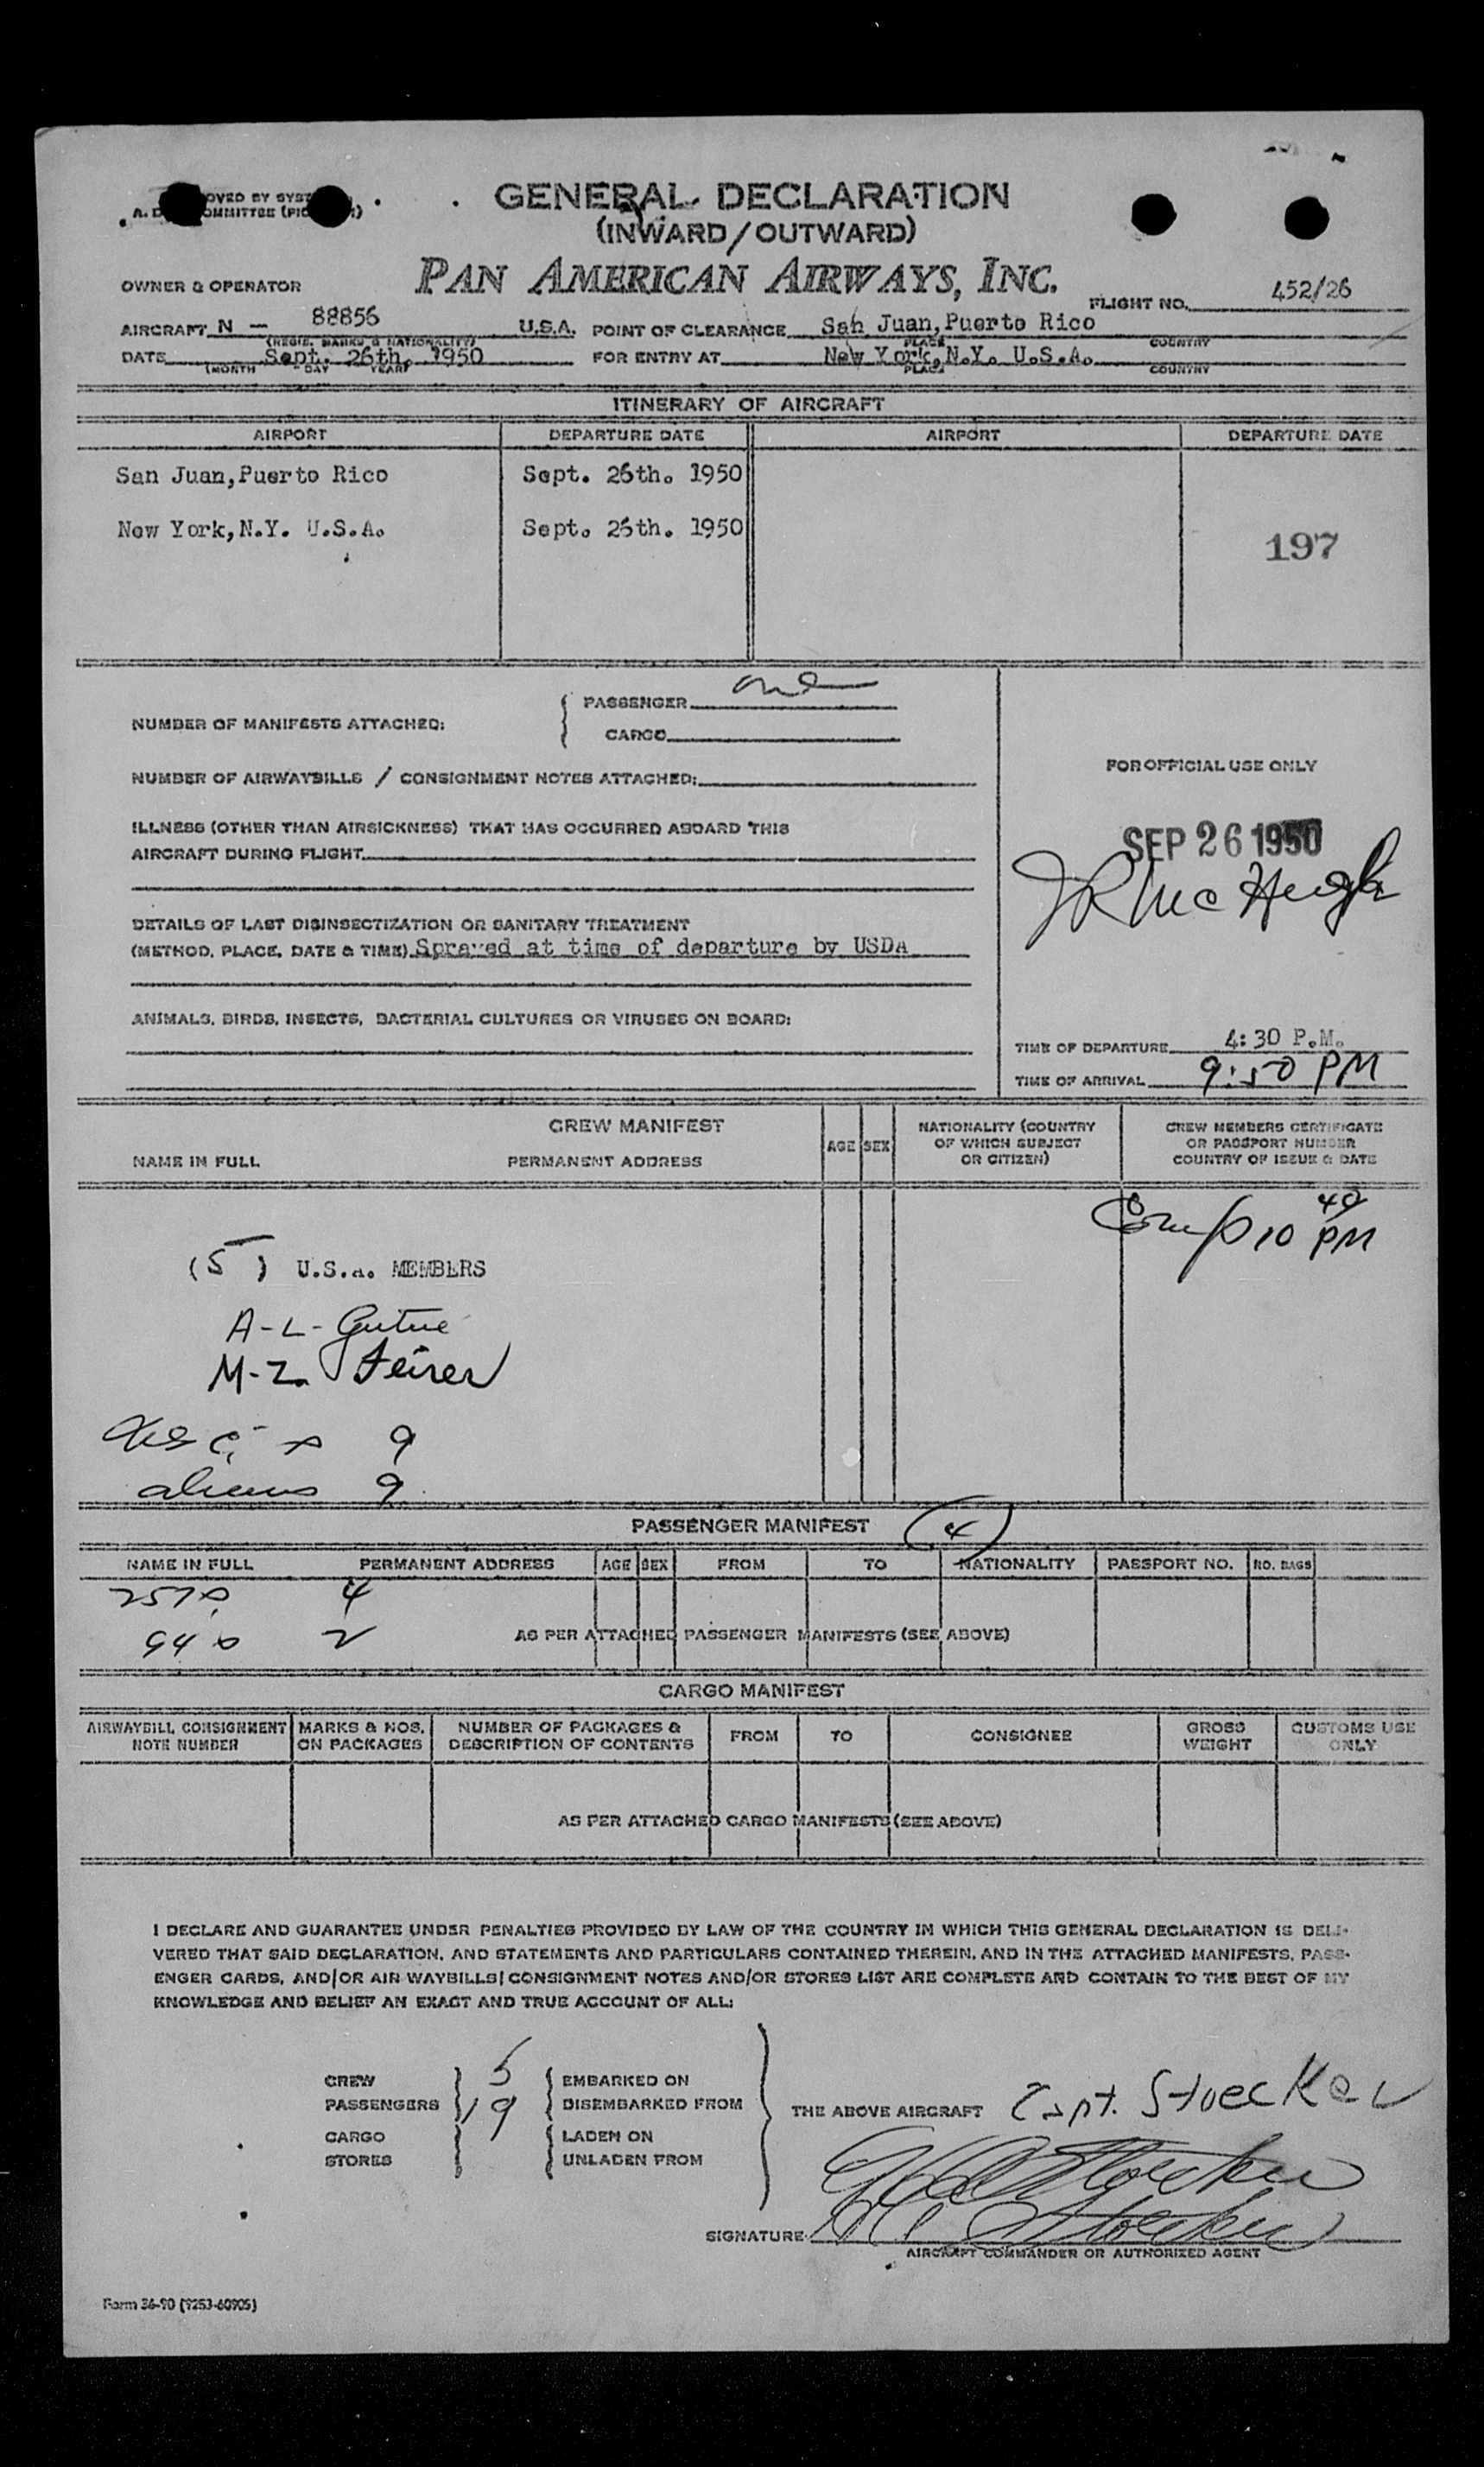 GENERAL DECLARATION
(INWARD/OUTWARD)
PAN AMERICAN AIRWAYS, INC.
OWNER & OPERATOR
FLIGHT NO. 452/26
AIRCRAFT N - 88856 U.S.A. POINT OF CLEARANCE San Juan, Puerto Rico
(REGIS. MARKS & NATIONALITY) PLACE COUNTRY
DATE Sept. 26th. 1950 FOR ENTRY AT New York, N.Y. U.S.A.
(MONTH DAY YEAR) PLACE COUNTRY
ITINERARY OF AIRCRAFT
AIRPORT DEPARTURE DATE AIRPORT DEPARTURE DATE
San Juan, Puerto Rico Sept. 26th. 1950
New York, N.Y. U.S.A. Sept. 26th. 1950
197
NUMBER OF MANIFESTS ATTACHED: PASSENGER one
CARGO
NUMBER OF AIRWAYBILLS / CONSIGNMENT NOTES ATTACHED:
FOR OFFICIAL USE ONLY
ILLNESS (OTHER THAN AIRSICKNESS) THAT HAS OCCURRED ABOARD THIS
AIRCRAFT DURING FLIGHT
SEP 26 1950
JR McHugh
DETAILS OF LAST DISINSECTIZATION OR SANITARY TREATMENT
(METHOD, PLACE, DATE & TIME) Sprayed at time of departure by USDA
ANIMALS, BIRDS, INSECTS, BACTERIAL CULTURES OR VIRUSES ON BOARD:
TIME OF DEPARTURE 4:30 P.M.
TIME OF ARRIVAL 9:50 PM
CREW MANIFEST
NAME IN FULL PERMANENT ADDRESS AGE SEX NATIONALITY (COUNTRY OF WHICH SUBJECT OR CITIZEN) CREW MEMBERS CERTIFICATE OR PASSPORT NUMBER COUNTRY OF ISSUE & DATE
Comp 10 40 PM
(5) U.S.A. MEMBERS
A-L-
M-Z
9
aliens 9
PASSENGER MANIFEST (4)
NAME IN FULL PERMANENT ADDRESS AGE SEX FROM TO NATIONALITY PASSPORT NO. NO. BAGS
4
2
AS PER ATTACHED PASSENGER MANIFESTS (SEE ABOVE)
CARGO MANIFEST
AIRWAYBILL CONSIGNMENT NOTE NUMBER MARKS & NOS. ON PACKAGES NUMBER OF PACKAGES & DESCRIPTION OF CONTENTS FROM TO CONSIGNEE GROSS WEIGHT CUSTOMS USE ONLY
AS PER ATTACHED CARGO MANIFESTS (SEE ABOVE)
I DECLARE AND GUARANTEE UNDER PENALTIES PROVIDED BY LAW OF THE COUNTRY IN WHICH THIS GENERAL DECLARATION IS DELI-
VERED THAT SAID DECLARATION, AND STATEMENTS AND PARTICULARS CONTAINED THEREIN, AND IN THE ATTACHED MANIFESTS, PASS-
ENGER CARDS, AND/OR AIR WAYBILLS/CONSIGNMENT NOTES AND/OR STORES LIST ARE COMPLETE AND CONTAIN TO THE BEST OF MY
KNOWLEDGE AND BELIEF AN EXACT AND TRUE ACCOUNT OF ALL:
CREW 5 EMBARKED ON
PASSENGERS 19 DISEMBARKED FROM
THE ABOVE AIRCRAFT Capt. Stoecker
CARGO LADEN ON
STORES UNLADEN FROM
SIGNATURE
AIRCRAFT COMMANDER OR AUTHORIZED AGENT
Form 36-90 (9253-60905)